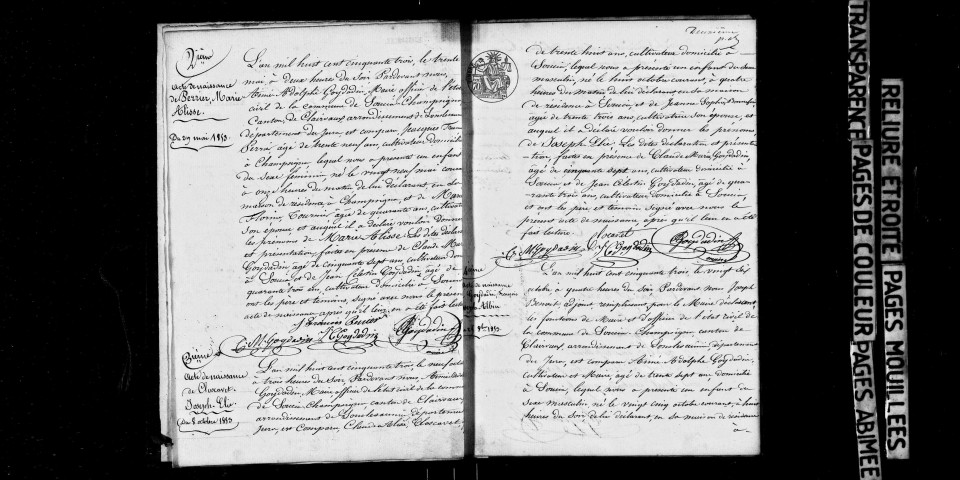 2ième
Acte de naissance
de Perrier, Marie
Alisse.
Du 29 mai 1853.
L'an mil huit cent cinquante trois, le trente
mai, à deux heures du soir Pardevant nous,
Aimé Adolphe Goydadin, Maire officier de l'état
civil de la commune de Soucia-Champsigna
Canton de Clairvaux arrondissement de Lonslesaunier
département du Jura, est comparu Jacques
Perrier, agé de trente neuf ans, cultivateur domicilié
à Champsigna, lequel nous a présenté un enfant
du sexe féminin, né le vingt neuf mai courant
à onze heures du matin de lui déclarant, en sa
maison de résidence, à Champsigna, et de Marie
Florine, Tournier agée de quarante ans, cultivatrice
son épouse et auquel il a déclaré vouloir donner
les prénoms de Marie Alisse. Les dites déclaration
et présentation, faites en présence de Claude Marie
Goydadin agé de cinquante sept ans cultivateur
à Soucia et de Jean Célestin Goydadin, agé de
quarante trois ans, cultivateur domicilié à Soucia
ont les père et témoins, signé avec nous le présent
acte de naissance après qu'il leur en a été fait lecture
C. M. Goydadin J. C. Goydadin Goydadin
3ième
Acte de naissance
de
Joseph-Elie.
Du 8 octobre 1853
L'an mil huit cent cinquante trois le neuf octobre
à trois heures du Soir Pardevant nous, Aimé
Goydadin, Maire officier de l'état civil de la commune
de Soucia-Champsigna canton de Clairvaux
arrondissement de Lonslesaunier département
Jura, est comparu, Claude Alixe,
Deuxième
de trente huit ans, cultivateur domicilié à
Soucia, lequel nous a présenté un enfant du sexe
masculin, né le huit octobre courant, à quatre
heures du matin de lui déclarant, en sa maison
de résidence à Soucia, et de Jeanne Sophie
agée de trente trois ans, cultivatrice son épouse, et
auquel il a déclaré vouloir donner les prénoms
de Joseph Elie. Les dites déclaration et présenta-
tion, faites en présence de Claude Marie Goydadin,
agé de cinquante sept ans, cultivateur domicilié à
Soucia et de Jean Célestin Goydadin, agé de qua-
rante trois ans, cultivateur domicilié à Soucia,
et ont les père et témoins signé avec nous le
présent acte de naissance, après qu'il leur en a été
fait lecture.
C. M. Goydadin J. C. Goydadin Goydadin
4ième
Acte de naissance
Albin
L'an mil huit cent cinquante trois le vingt six
octobre à quatre heures du soir Pardevant nous Joseph
Benoit, adjoint remplissant pour le Maire déclarant,
les fonctions de Maire et d'officier de l'état civil de
la commune de Soucia Champsigna canton de
Clairvaux, arrondissement de Lonslesaunier, département
du Jura, est comparu Aimé Adolphe Goydadin,
cultivateur et Maire, agé de trente sept ans, domicilié
à Soucia, lequel nous a présenté un enfant du
sexe masculin, né le vingt cinq octobre courant, à huit
heures du Soir de lui déclarant, en sa maison de résidence
à
TRANSPARENCE PAGES DE COULEUR PAGES ABIMEE
RELIURE ETROITE PAGES MOUILLEES